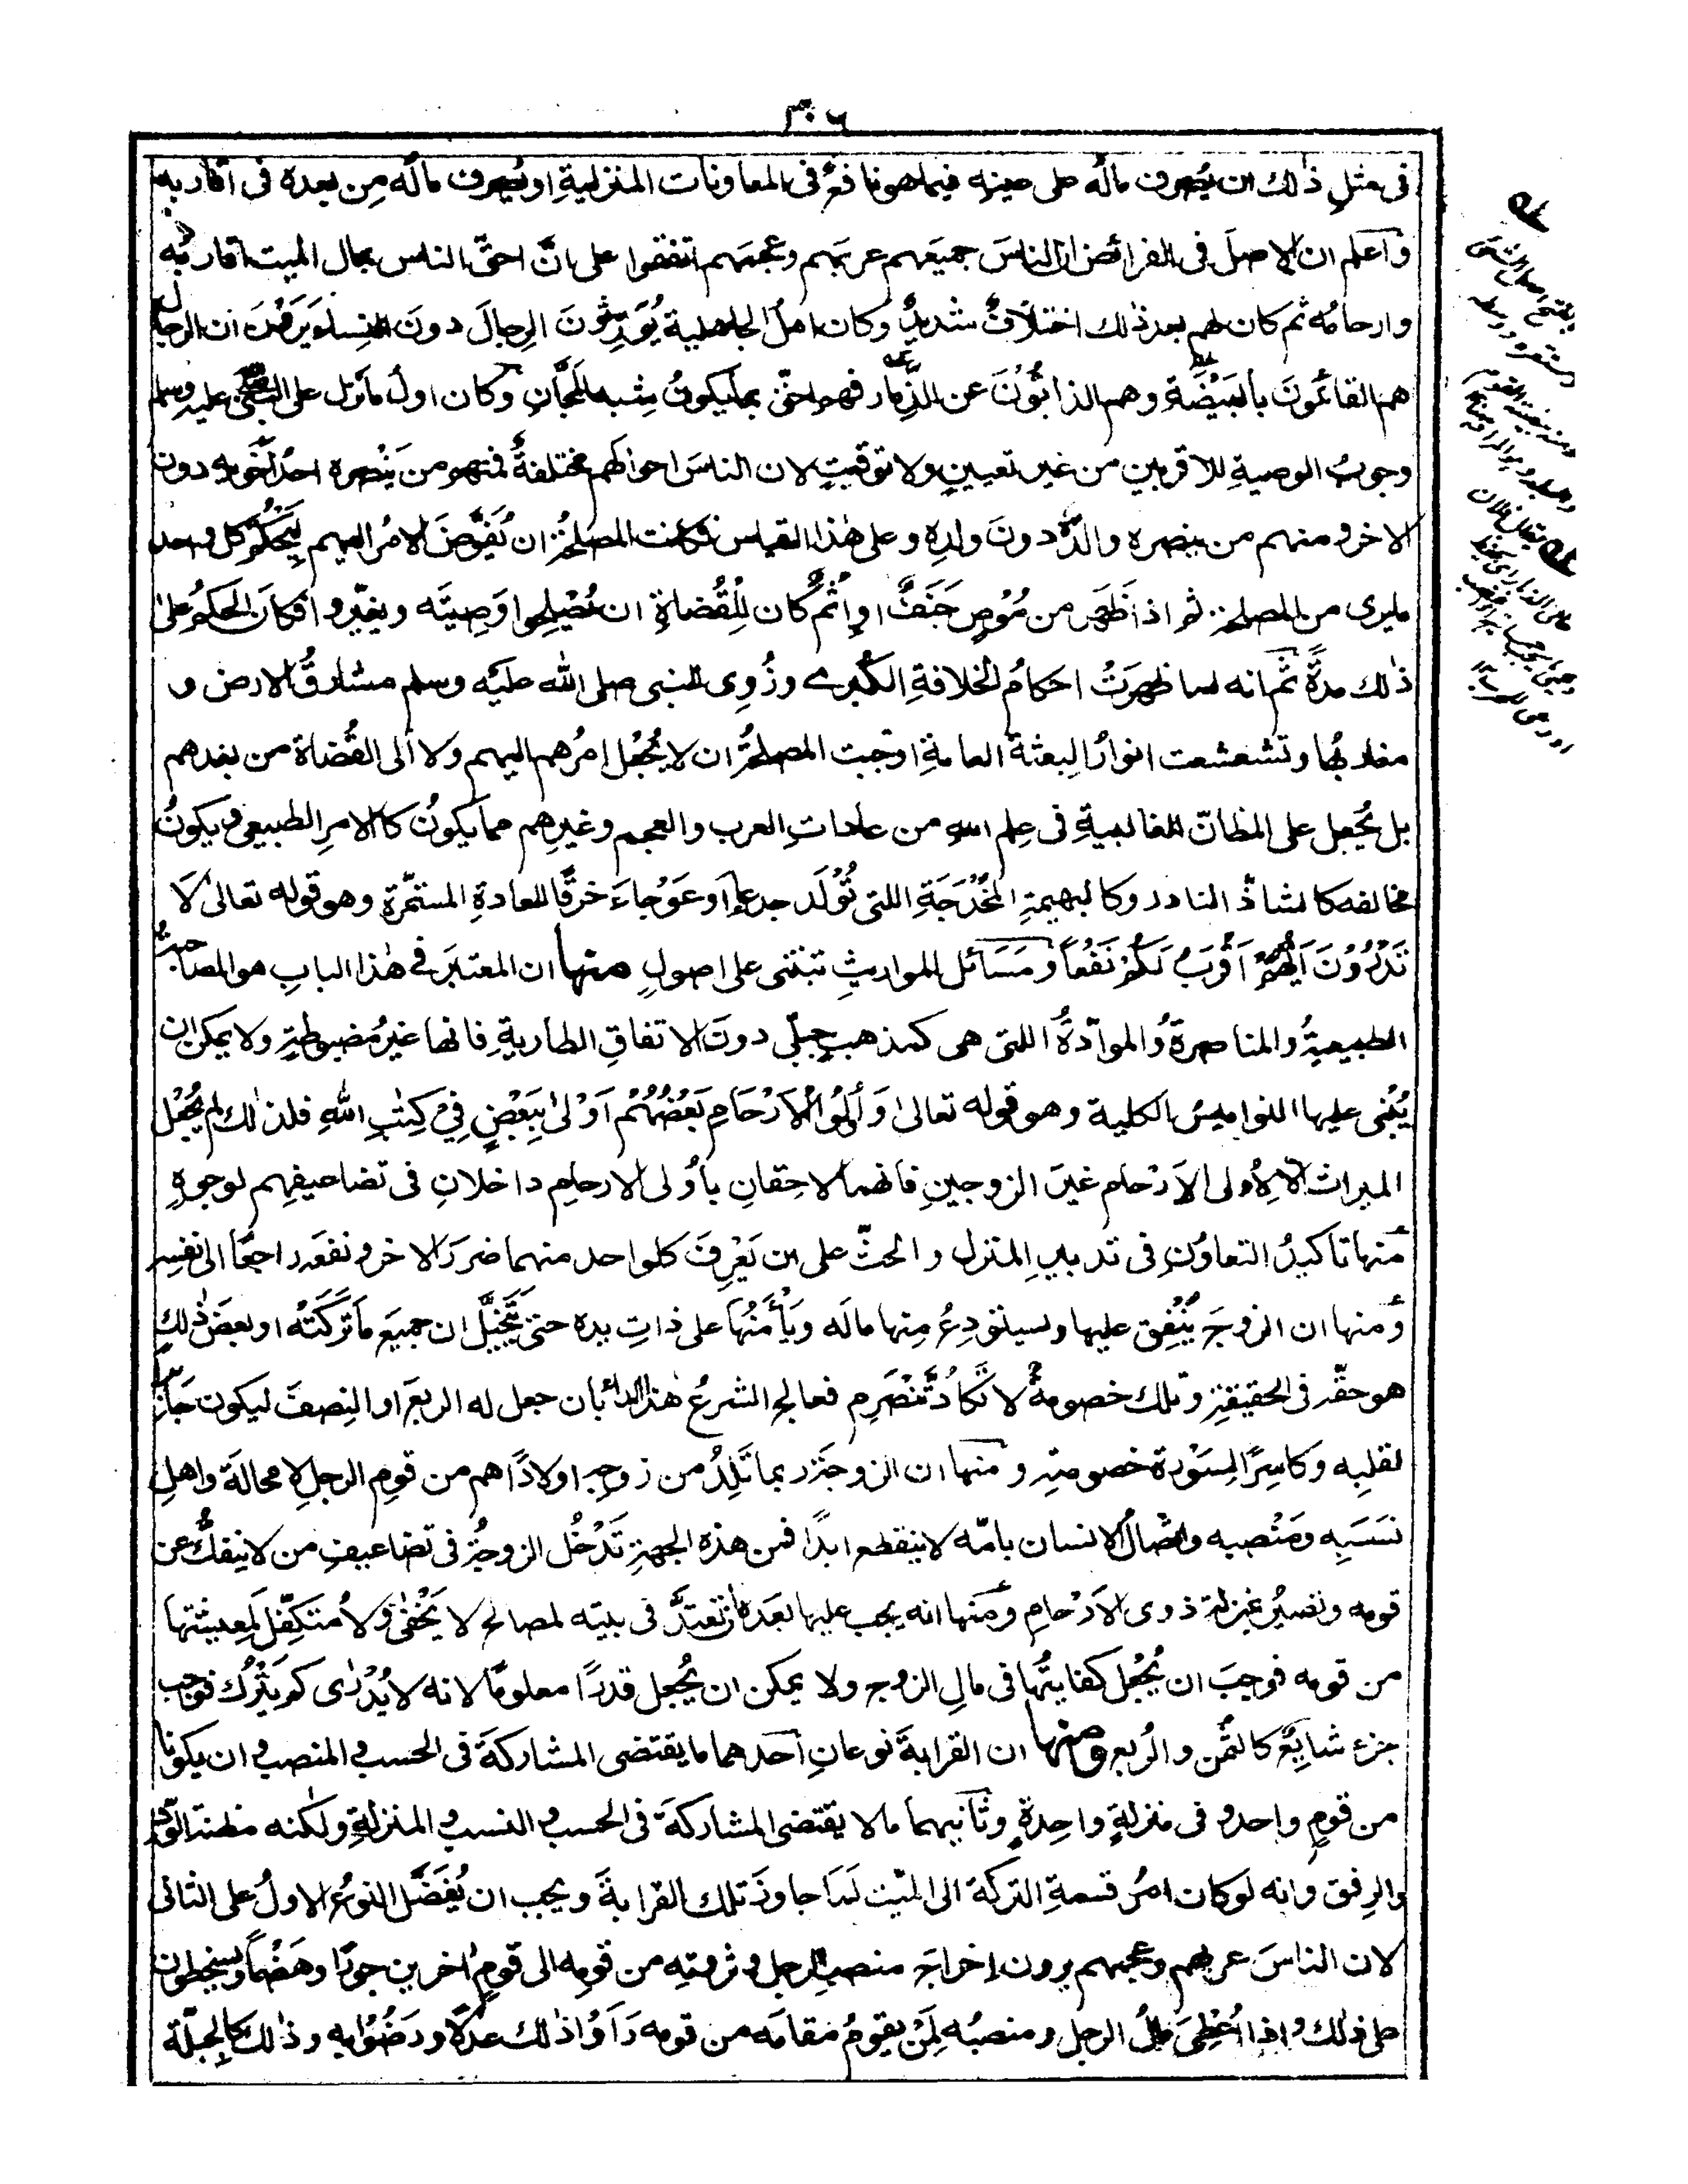 ٣٠٦
فى مثل ذٰلك ان يُصرف مالُه على حينه فيما هو نافعٌ فى المعاونات المنزلية او يُصرف مالُه مِن بعده فى اقاربه
واعلم ان الاصلَ فى الفرائض ان الناسَ جميعَهم عربَهم وعجمَهم اتفقوا على انَّ احقَّ الناس بمال الميت اقاربُه
وارحامُه ثم كان لهم بعد ذٰلك اختلافٌ شديدٌ وكان اهلُ الجاهلية يُوَرِّثونَ الرِجالَ دونَ النساء يَرَونَ ان الرجالَ
هم القائمُونَ بالبَيْضَةِ وهم الذابُّوْنَ عن الذِّمار فهم احقّ بما يكونُ شِبهَ المجَّانِ وكان اولُ ما نزل على النبى صلى الله عليه وسلم
وجوبُ الوصيةِ للاقربين من غير تعيينٍ ولا توقيتٍ لان الناسَ احوالهم مختلفةٌ فمنهم من يَنْصره احدُ اَخَويه دون
الاخر ومنهم من ينصره والدُه دونَ ولدِه وعلى هٰذا القياس فكانت المصلحةُ ان يُفَوَّضَ الامرُ اليهم لِيَحكُمَ كل واحد
ما يرى من المصلحة ثم اذا ظَهَر من مُوْصٍ جَنَفٌ او اثمٌ كان لِلْقُضاةِ ان يُصْلِحوا وَصِيتَه ويغيّروا فكانَ الحكمُ على
ذٰلك مدةً ثم انه لما ظهرَتْ احكامُ الخلافةِ الكُبرے وزُوِى للنبى صلى الله عليه وسلم مشارقُ الارض و
مغاربُها وتشعشعت انوارُ البعثة العامةِ اوجبت المصلحةُ ان لا يُجْعل امرُهم اليهم ولا الى القُضاة من بعدهم
بل يُجعل على المظانّ الغالبيةِ فى عِلم الله من عاداتِ العرب والعجم وغيرِهم مما يكونُ كالامرِ الطبيعى ويكونُ
مخالفه كالشاذّ النادر وكالبهيمةِ المُخْدَجَةِ اللتى تُوْلَد جدعاء او عَوْجاءَ خرقًا للعادةِ المستمّرة وهو قوله تعالى لَا
تَدْرُوْنَ اَيُّهُمْ اَقْرَبُ لَكُمْ نَفْعاً ومَسَائل المواريثِ تبتنى على اصولٍ منها ان المعتبَرَ فى هٰذا البابِ هو المصاحبةُ
الطبيعيةُ والمناصرةُ والموادّةُ اللتى هى كمذهبٍ جبلّى دونَ الاتفاقِ الطاريةِ فانها غيرُ مضبوطةٍ ولا يمكن ان
يُبْنى عليها النواميسُ الكلية وهو قوله تعالى وَ اُولُوا الْاَرْحَامِ بَعْضُهُمْ اَوْلٰى بِبَعْضٍ فِىْ كِتٰبِ اللهِ فلذٰلك لم يُجْعل
الميراث الا لِاُولى الاَرْحام غيرَ الزوجينِ فانهما لاحِقانِ باُولى الارحام داخلانِ فى تضاعيفهم لوجوهٍ
منها تاكيدُ التعاوُنِ فى تدبيرِ المنزل والحثّ على ان يَعْرِفَ كلواحد منهما ضررَ الاخر ونفعَه راجعًا الى نفسِه
ومنها ان الزوجَ يُنْفِق عليها ويستودِعُ مِنها مالَه ويَأمَنُها على ذاتِ يده حتىٰ يَتَخيَّل ان جميعَ ما تَرَكَتْه او بعضَ ذٰلك
هو حقُّه فى الحقيقةِ وتلك خصومةٌ لا تَكَادُ تَنْصَرِم فعالج الشرعُ هٰذا الداءَ بان جعل له الربعَ او النِصفَ ليكون جابرًا
لقلبِه وكاسِرًا لِسَوْرة خصومتِه ومنها ان الزوجةَ ربما تَلِدُ من زوجِها اولادًا هم من قوم الرجلِ لا محالةَ واهلِ
نَسَبِه ومَنْصِبه واتصالُ الانسان بامّه لا ينقطع ابدًا فمن هذه الجهةِ تَدْخُل الزوجةُ فى تضاعيفِ من لا ينفكُّ عن
قومه وتصيرُ بمنزلة ذوى الاَرْحامِ ومنها انه يجب عليها بعدَه ان تعتدَّ فى بيته لمصالح لا يَخْفٰى ولا مُتكفِّل لِمَعِيشتها
من قومه فوجبَ ان يُجْعل كفايتُها فى مالِ الزوج ولا يمكن ان يُجعل قدرًا معلومًا لانه لا يُدْرٰى كم يَتْرُك فوجب
جزءٌ شايعٌ كالثُمن والرُبع ومنها ان القرابةَ نوعانِ اَحدهما ما يقتضى المشاركةَ فى الحسب والمنصب وان يكونا
من قومٍ واحدٍ وفى منزلةٍ واحِدةٍ وثانيهما ما لا يقتضى المشاركةَ فى الحسب والنسب والمنزلةِ ولٰكنه مظنة الودّ
والرِفق وانه لو كان امرُ قسمةِ التركة الى الميّت لَمَا جاوزَ تلك القرابةَ ويجب ان يُفَضَّل النوعُ الاولُ على الثانى
لان الناسَ عربَهم وعجمهم يرون اِخراجَ منصب الرجل وثروتِه من قومِه الى قومٍ اٰخرين جورًا وهَضْمًا ويسخطون
على ذٰلك واذا اُعْطِىَ مالُ الرجل ومنصبُه لِمَنْ يقومُ مَقامَه من قومه رَأَوْا ذٰلك عدلًا ورَضُوْا به وذٰلك كالجبلّة